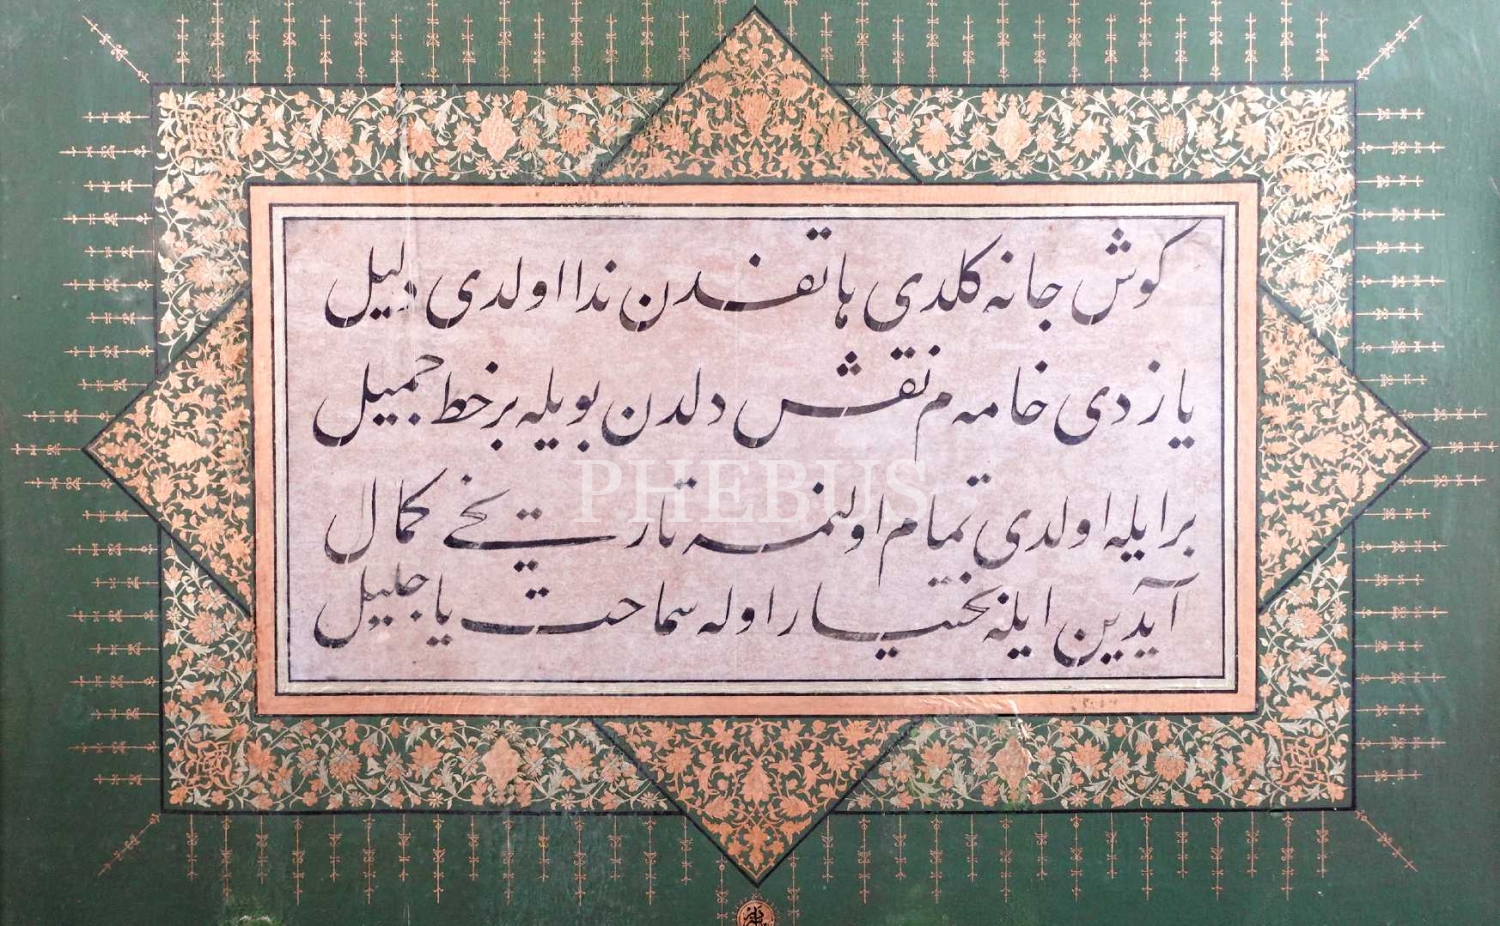 كوش جانه كلدی هاتفدن ندا اولدی دلیل
یازدی خامه م نقش دلدن بویله بر خط جمیل
بر ایله اولدی تمام اولنمه تاریخی كمال
آیدین ایله بختیار اوله سماحت یا جلیل
PHEBUS